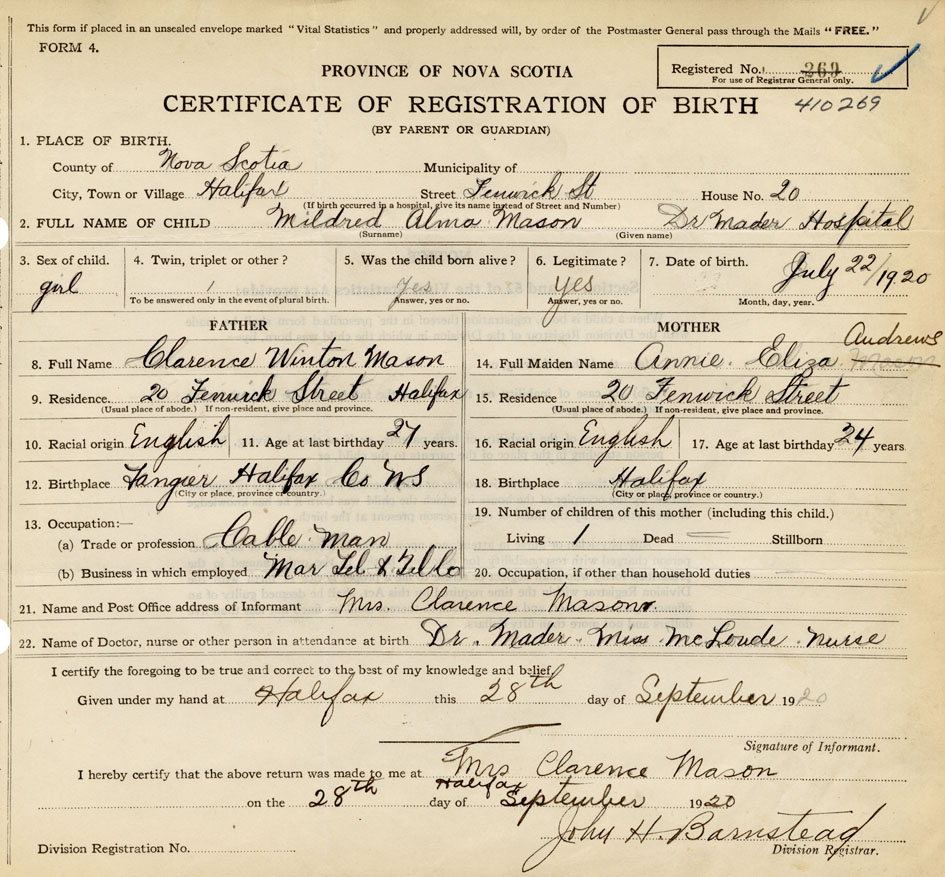 This form if placed in an unsealed envelope marked "Vital Statistics" and properly addressed will, by order of the Postmaster General pass through the Mails "FREE."
FORM 4.
PROVINCE OF NOVA SCOTIA
Registered No. 269
For use of Registrar General only.
CERTIFICATE OF REGISTRATION OF BIRTH 410269
(BY PARENT OR GUARDIAN)
1. PLACE OF BIRTH.
County of Nova Scotia Municipality of
City, Town or Village Halifax Street Fenwick St House No. 20
(If birth occurred in a hospital, give its name instead of Street and Number)
2. FULL NAME OF CHILD Mildred Alma Mason Dr Mader Hospital
(Surname) (Given name)
3. Sex of child. 4. Twin, triplet or other? 5. Was the child born alive? 6. Legitimate? 7. Date of birth.
girl / Yes yes July 22/1920
To be answered only in the event of plural birth. Answer, yes or no. Answer, yes or no. Month, day, year.
FATHER MOTHER
8. Full Name Clarence Winton Mason 14. Full Maiden Name Annie. Eliza Mason Andrews
9. Residence. 20 Fenwick Street Halifax 15. Residence 20 Fenwick Street
(Usual place of abode.) If non-resident, give place and province. (Usual place of abode.) If non-resident, give place and province.
10. Racial origin English 11. Age at last birthday 27 years. 16. Racial origin English 17. Age at last birthday 24 years
12. Birthplace Tangier Halifax Co NS 18. Birthplace Halifax
(City or place, province or country.) (City or place, province or country.)
13. Occupation:— 19. Number of children of this mother (including this child.)
(a) Trade or profession Cable Man Living 1 Dead — Stillborn
(b) Business in which employed Mar Tel & Tel Co 20. Occupation, if other than household duties
21. Name and Post Office address of Informant Mrs. Clarence Mason
22. Name of Doctor, nurse or other person in attendance at birth Dr. Mader. Miss McLoude. Nurse
I certify the foregoing to be true and correct to the best of my knowledge and belief.
Given under my hand at Halifax this 28th day of September 1920
Signature of Informant.
I hereby certify that the above return was made to me at Mrs Clarence Mason
Halifax
on the 28th day of September 1920
John H. Barnstead
Division Registration No. Division Registrar.